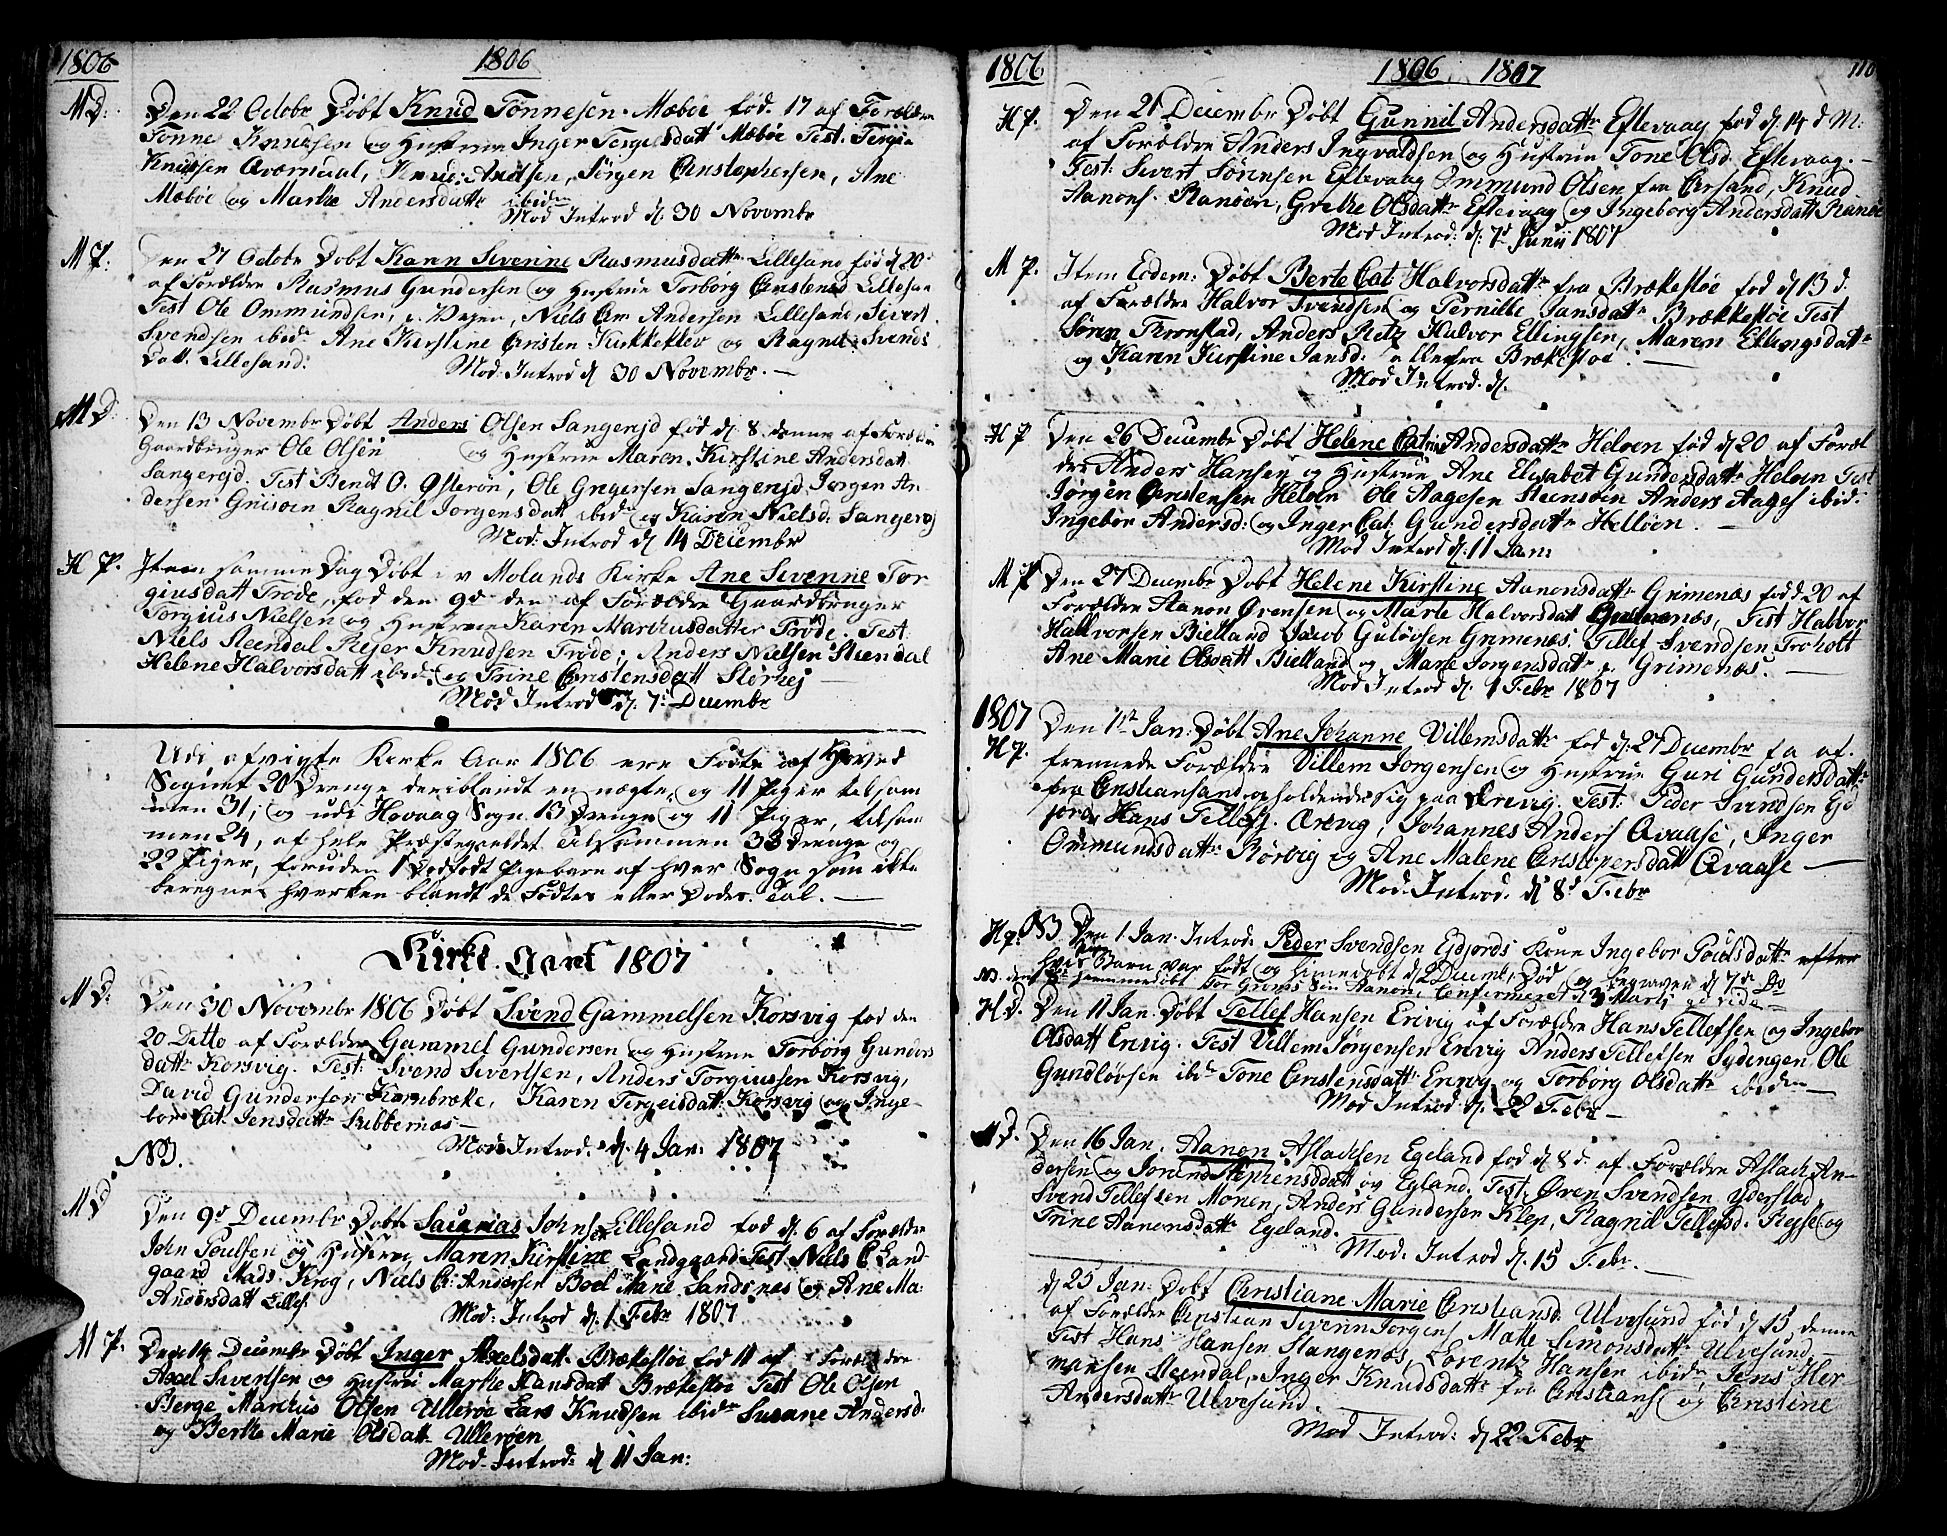 1806
1806
M D. Den 22 Octobr Døbt Knud Tønnesen Mæbøe fød. 17 af Forældre
Tønne Knudsen og Hustrue Inger Tergelsdatt Mæbøe Test. Tergi
Knudsen Qværnaal, Knud Andsen, Jørgen Christophersen, Ane
Mæbøe og Marthe Andersdattr ibidn
Mod Introd d. 30 Novembr
M P. Den 27 Octobr Døbt Karen Sevrine Rasmusdattr Lillesand fød d 20
af Forældre Rasmus Gundersen og Hustrue Torborg Christensd Lillesan
Test Ole Ommundsen, Niels Chr Andersen Lillesand, Sivert
Svendsen ibidn Ane Kirstine Christen Kirkkeklev og Ragnil Svends
Datt. Lillesand.
Mod. Introd d 30 Novembr.
M D. Den 13 Novembr Døbt Anders Olsen Sangerejd fød d. 8 denne af Foræld
Gaardbruger Ole Olsen og Hustrue Maren Kirstine Andersdatt
Sangerejd. Test Bendt O. Østerøn, Ole Gregersen Sangerejd Jørgen An-
dersen Griisøen Ragnil Jorgensdatt ibidn og Karen Nielsd. Sangerej
Mod. Introd d 14 Decembr
H P. Item samme Dag Døbt i v Molands Kirke Ane Sevrine Tor
giusdatt Trøde, fød den 9d den af Forældre Gaardbruger
Torgius Nielsen og Hustrue Karen Marchusdatter Trøde. Test.
Niels Steendal Rejer Knudsen Trøde, Anders Nielsen Stendal
Helene Halvorsdatt ibidn og Trine Christensdatt Størhej
Mod Introd d. 7 Decembr
Udi afvigte Kirke Aar 1806 ere Fødte af Hoved
Sognet 20 Drenge deriblandt en uægte, og 11 Piger tilsam
men 31; og udi Hovaag Sogn 13 Drenge og 11 Piger, tilsam
men 24, af hele Præstegieldet Tilsammen 33 Drenge og
22 Piger, foruden 1 Dødfødt Pigebarn af hver Sogn som ikke
beregnes hverken blandt de Fødtes eller Dødes Tal.
Kirke Aaret 1807
M D. Den 30 Novembr 1806 Døbt Svend Gammelsen Korsvig fød den
20 Ditto af Forældre Gammel Gundersen og Hustrue Torborg Gunders
datt Korsvig. Test: Svend Sivertsen, Anders Torgiussen Korsvig,
David Gundersen Kornbræke, Karen Tergeisdatt Korsvig og Inge-
bor Cat. Jensdattr Subbernæs
Mod. Introd. d. 4 Jan. 1807
NB.
M D Den 9d Decembr Døbt Sacarias Johns. Lillesand fød d. 6 af Forældre
John Poulsen og Hustrue Maren Kirstine Landgaard Test Niels C Land-
gaard Mads Krog, Niels Ch. Andersen Boel Marie Sandsnæs og Ane Ma.
Andersdatt Lilles.
Mod. Introd d. 1 Febr 1807
M P. Den 14 Decembr Døbt Inger Axelsdatt. Brækestøe fød 11 af Forældre
Axel Sivertsen og Hustrue Marthe Hansdatt Brækestøe Test Ole Olsen
Berge Marchus Olsen Ulleroe Lars Knudsen ibidn Susane Andersd.
og Berthe Marie Olsdatt Ullerøen
Mod. Introd. d 11 Jan.
1806
1806 1807
110
H P. Den 21 Decembr Døbt Gunnil Andersdattr Eftevaag fød d. 14 d M.
af Forældre Anders Ingvaldsen og Hustrue Tone Olsd. Eftevaag.
Test. Sivert Sørensen Eftevaag Ommund Olsen fra Chrsand, Knud
Aanons. Ranøen, Grethe Olsdattr Eftevaag og Ingeborg Andersdatt Ranøe
Mod Introd. d. 7d Junii 1807
M P. Item Eodem. Døbt Berte Cat Halvorsdattr fra Brækestøe fød d 13 d.
af Forældre Halvor Svendsen og Pernille Jansdattr Brækkestøe Test
Søren Thronstad, Anders Retz Halvor Ellingsen, Maren Ellingsdattr
og Karen Kirstine Jansd. allesra Brækestøe
Mod Introd. d.
H P Den 26 Decembr Døbt Helene Catrin Andersdattr Heloen fød d 20 af Foræl
dre Anders Hansen og Hustrue Ane Elisabet Gundersdattr Heloen Test
Jørgen Christensen Heloen Ole Aagesen Steensøen Anders Aages ibidn
Ingebor Andersd. og Inger Cat. Gundersdattr Helløen.
Mod Introd d. 11 Jan.
M P Den 27 Decembr Døbt Helene Kirstine Aanonsdattr Grimenæs fød d. 20 af
Forældre Aanon Ørensen og Marte Halvorsdatt Grimenæs, Test Halvor
Hallvorsen Bielland Jacob Guløvsen Grimenæs, Tellef Svendsen Froholt
Ane Marie Olsdatt Bielland og Marie Jorgensdattr Grimenæs.
Mod Introd d. 1 Febr 1807
1807
H P. Den 1ste Jan. Døbt Ane Johanne Villemsdattr fød d. 27 Decembr f a af.
fremmede Forældre Villem Jorgensen og Hustrue Guri Gundersdattr
fra Christiansand opholdende sig paa Erevig. Test: Peder Svendsen Ejd
jord Hans Tellefs. Ærevig, Johannes Anders Qvaase, Inger
Ommundsdattr Rørvig og Ane Malene Christopersdatt Qvaase
Mod. Introd. d 8d Febr
H P. NB Den 1 Jan. Introd. Peder Svendsen Ejdjords Kone Ingebor Poulsdattr efter
hvis Barn var født og hjemmedøbt d 2 Decembr, Død og begraven d 7de Do
NB hjemmedøbt Tor Groms Søn Aanon, Confirmeret d 3 Marti
H D. Den 11 Jan. Døbt Tellef Hansen Erevig af Forældre Hans Tellefsen og Ingebor
Olsdatt Erevig. Test Villem Jørgensen Erevig Anders Tellefsen Sydengen, Ole
Gundløvsen ibidn Tone Christensdatt Erevig og Torborg Olsdattr ibidn
Mod Introd d. 22 Febr
M D. Den 16 Jan. Aanon Aslachsen Egeland fød d 8 d. af Forældre Aslach An-
dersen og Jorand Stephensdatt og Egland. Test. Øren Svendsen Yderstad,
Svend Tellefsen Monen, Anders Gundersen Klep, Ragnil Tellefsd. Reyse og
Trine Aanonsdattr Egeland.
Mod. Introd d. 15 Febr
d 25 Jan. Døbt Christiane Marie Christiansd. Ulvesund fød d 15 denne
af Forældre Christian Sivrin Jorgens Matte Simonsdattr Ulvesund
Test Hans Hansen Stangenæs, Lorentz Hansen ibidn, Jens Her-
mansen Steendal, Inger Knudsdattr fra Christians og Christine
Andersdattr Ulvesund.
Mod Introd. d 22 Febr